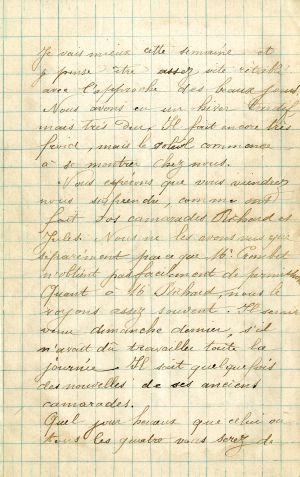 Je vais mieux cette semaine et
je pense être assez vite rétablie
avec l'approche des beaux jours.
Nous avons eu un hiver tardif
mais très dur. Il fait encore très
froid, mais le soleil commence
à se montrer chez nous.
Nous espérons que vous viendrez
nous surprendre, comme ont
fait vos camarades Richard et
Jules. Nous ne les avons vus que
séparément parce que Mr
n'obtient pas facilement de permission
Quant à Mr Richard, nous le
voyons assez souvent. Il serait
venu dimanche dernier, s'il
n'avait dû travailler toute la
journée. Il sait quelquefois
des nouvelles de ses anciens
camarades.
Quel jour heureux que celui où
tous les quatre vous serez de